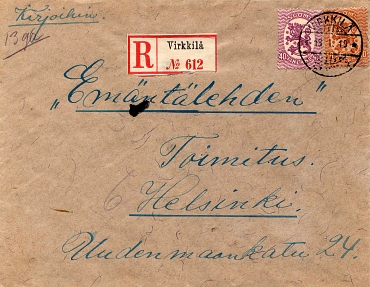 Kirjoihin.
R Virkkilä
№ 612
VIRKKILÄ
„Emäntälehden"
Toimitus.
Helsinki.
Uudenmaankatu 24.